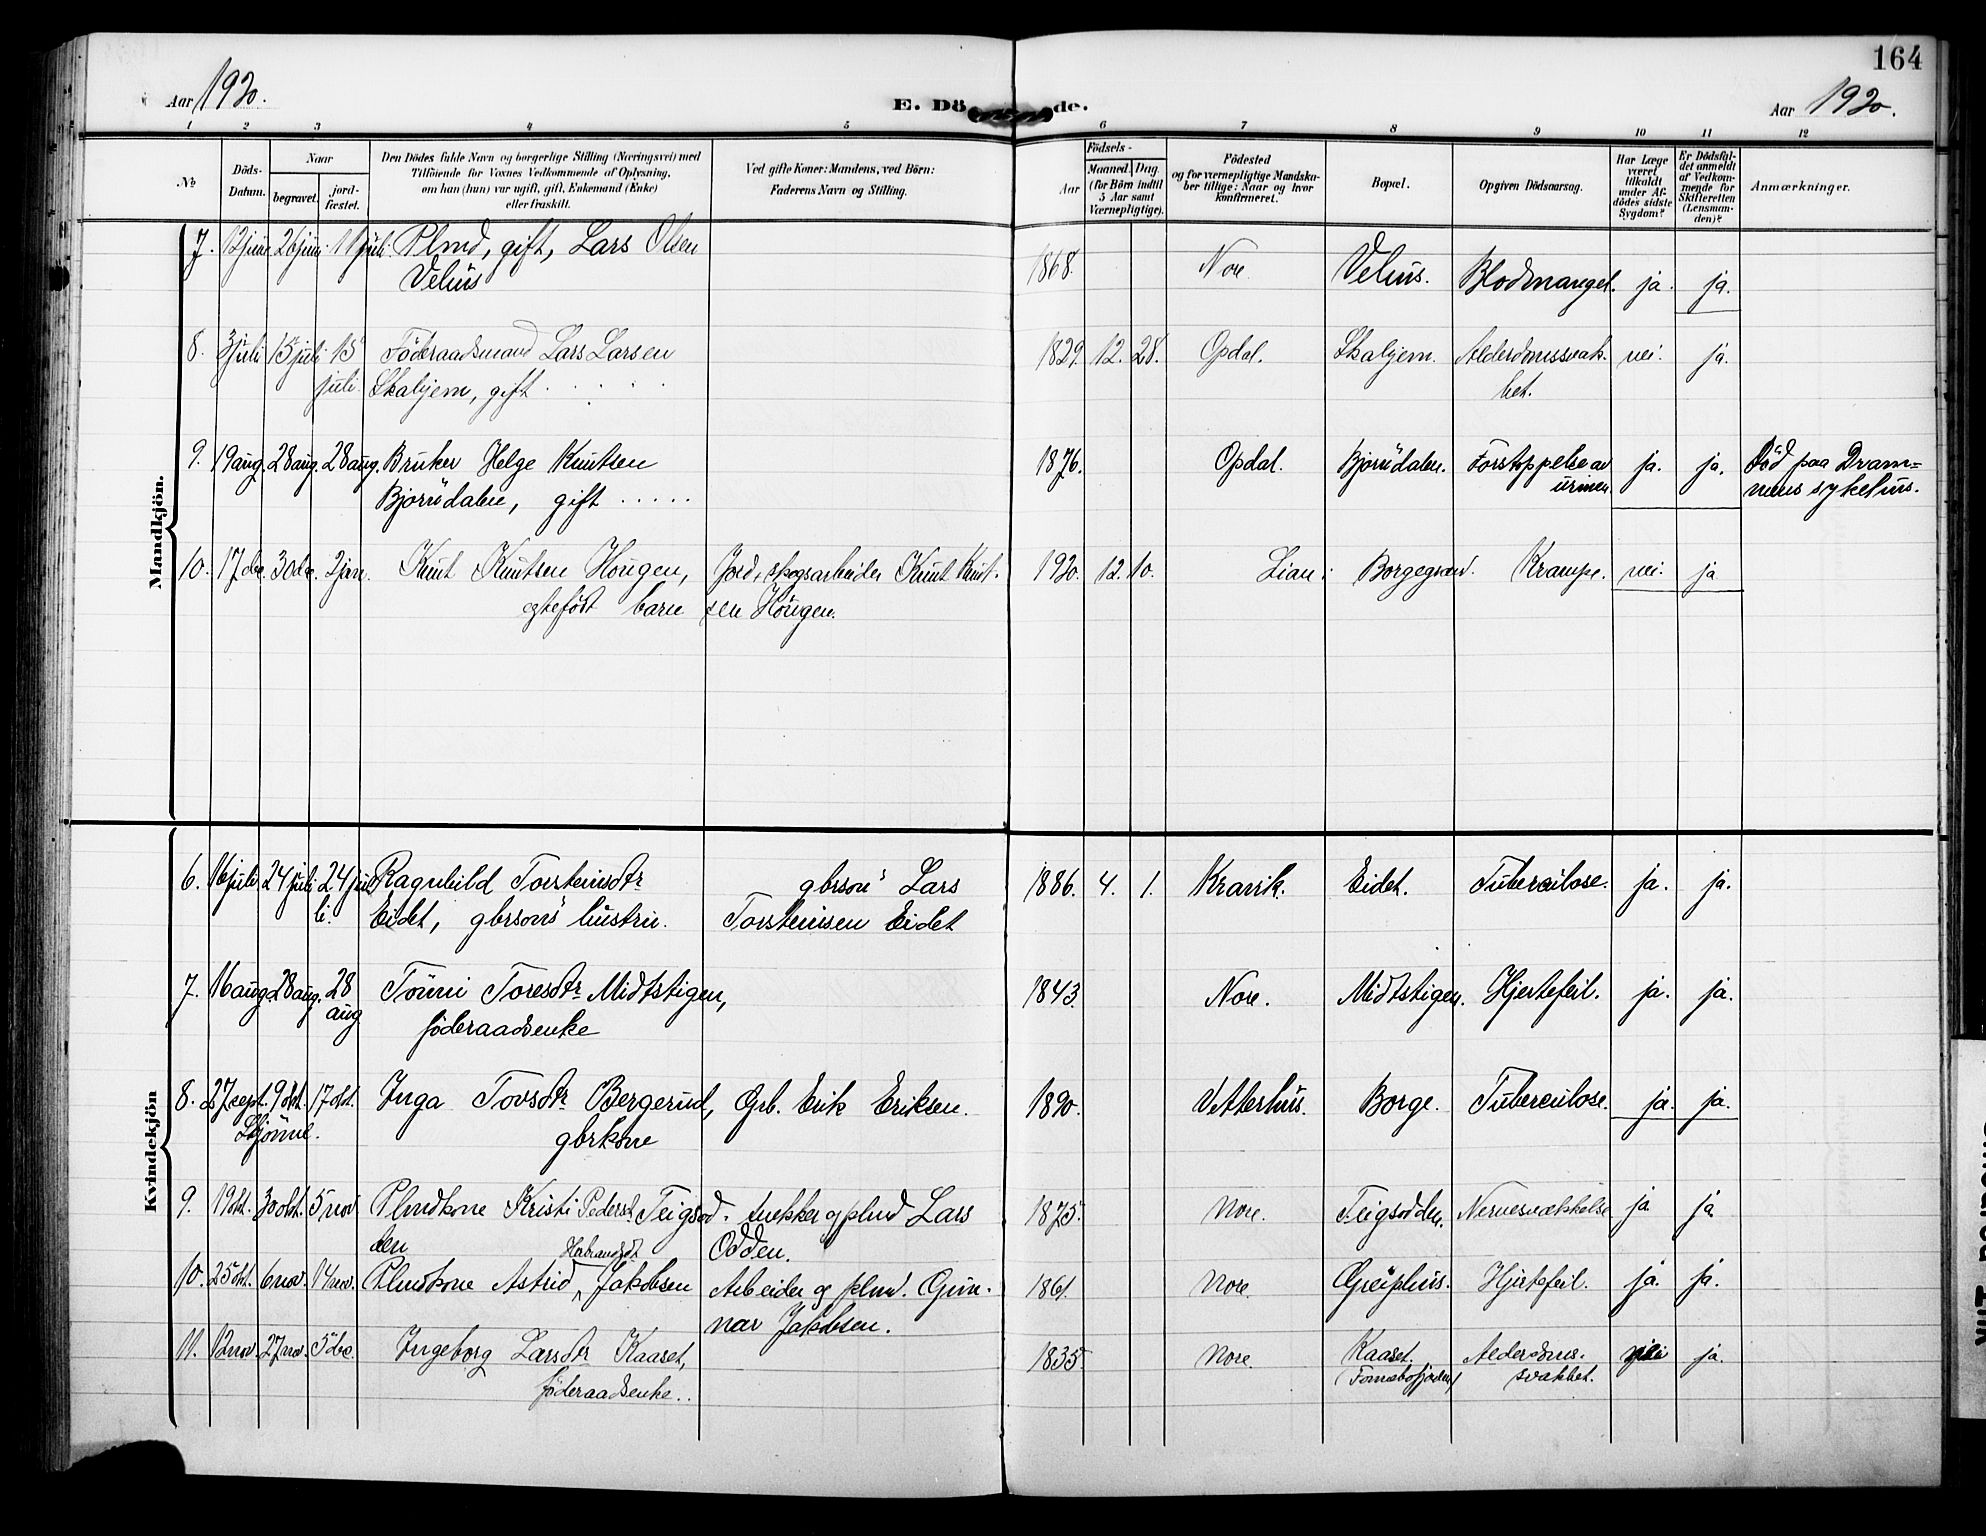 164
Aar 1920.
E. Dö de.
Aar 1920.
1 2 3 4 5 6 7 8 9 10 11 12
No
Döds-
Datum.
Naar
begravet.
jord-
fæstet.
Den Dödes fulde Navn og borgerlige Stilling (Næringsvei) med
Tilföiende for Voxnes Vedkommende af Oplysning,
om han (hun) var ugift, gift, Enkemand (Enke)
eller fraskilt.
Ved gifte Koner: Mandens, ved Börn:
Faderens Navn og Stilling.
Födsels-
Aar
Maaned. Dag.
(for Börn indtil
5 Aar samt
Værnepligtige).
Födested
og for værnepligtige Mandska-
ber tillige: Naar og hvor
konfirmeret.
Bopæl.
Opgiven Dödsaarsag.
Har Læge
været
tilkaldt
under Af-
dödes sidste
Sygdom?
Er Dödsfal-
det anmeldt
af Vedkom-
mende for
Skifteretten
(Lensman-
den)?
Anmærkninger.
Mandkjön.
7. 12 juni 26 juni 11 juli Plmd, gift, Lars Olsen
Velius 1868. Nore Velius. Blodmangel. ja. ja.
8. 3 juli 15 juli 15 Föderaadsmand Lars Larsen 1829. 12. 28. Opdal. Skaljem. Alderdomssvak- nei. ja.
juli. Skaljem, gift het.
9. 19 aug. 28 aug. 28 aug. Bruker Helge Knutsen 1876. Opdal. Bjorudalen. Forstoppelse av ja. ja. Död paa Dram-
Bjorudalen, gift urinen mens sykehus.
10. 17 dec. 30 dec. 2 jan. Knut Knutsen Hougen, Jord, skogsarbeider Knut Knut- 1920. 12. 10. Lian i Borgegrænd. Krampe. nei. ja
egtefödt barn sen Hougen.
Kvindekjön
6. 16 juli 24 juli 24 ju- Ragnhild Torsteinsdtr gbrson's Lars 1886. 4. 1. Kravik. Eidet. Tuberculose. ja. ja.
li. Eidet, gbrsons hustru. Torsteinsen Eidet
7. 16 aug. 28 aug. 28 Tönni Toresdtr Midtstigen, 1843. Nore. Midtstigen. Hjertefeil. ja. ja.
aug föderaadsenke
8. 27 sept. 9 okt. 17 okt. Inga Tovsdtr Bergerud, Grb. Erik Eriksen. 1890. Vetterhus. Borge. Tuberculose. ja. ja.
Skjönne. gbrkone
9. 19 okt. 30 okt. 5 nov Plmdkone Kristi Pedersd. Teigsod- snekker og plmd Lars 1875. Nore. Teigsodden. Nervesvækkelse ja ja
den Odden.
Herbrandsdt
10. 25 okt. 6 nov. 14 nov. Plmdkone Astrid Jakobsen Arbeider og plmd. Gun- 1861. Nore. Hjertefeil. ja. ja.
nar Jakobsen.
11. 12 nov. 27 nov. 5 dec. Ingeborg Larsdtr Kaaset, 1835. Nore. Kaaset. Alderdoms- nei ja.
föderaadsenke. svakhet.